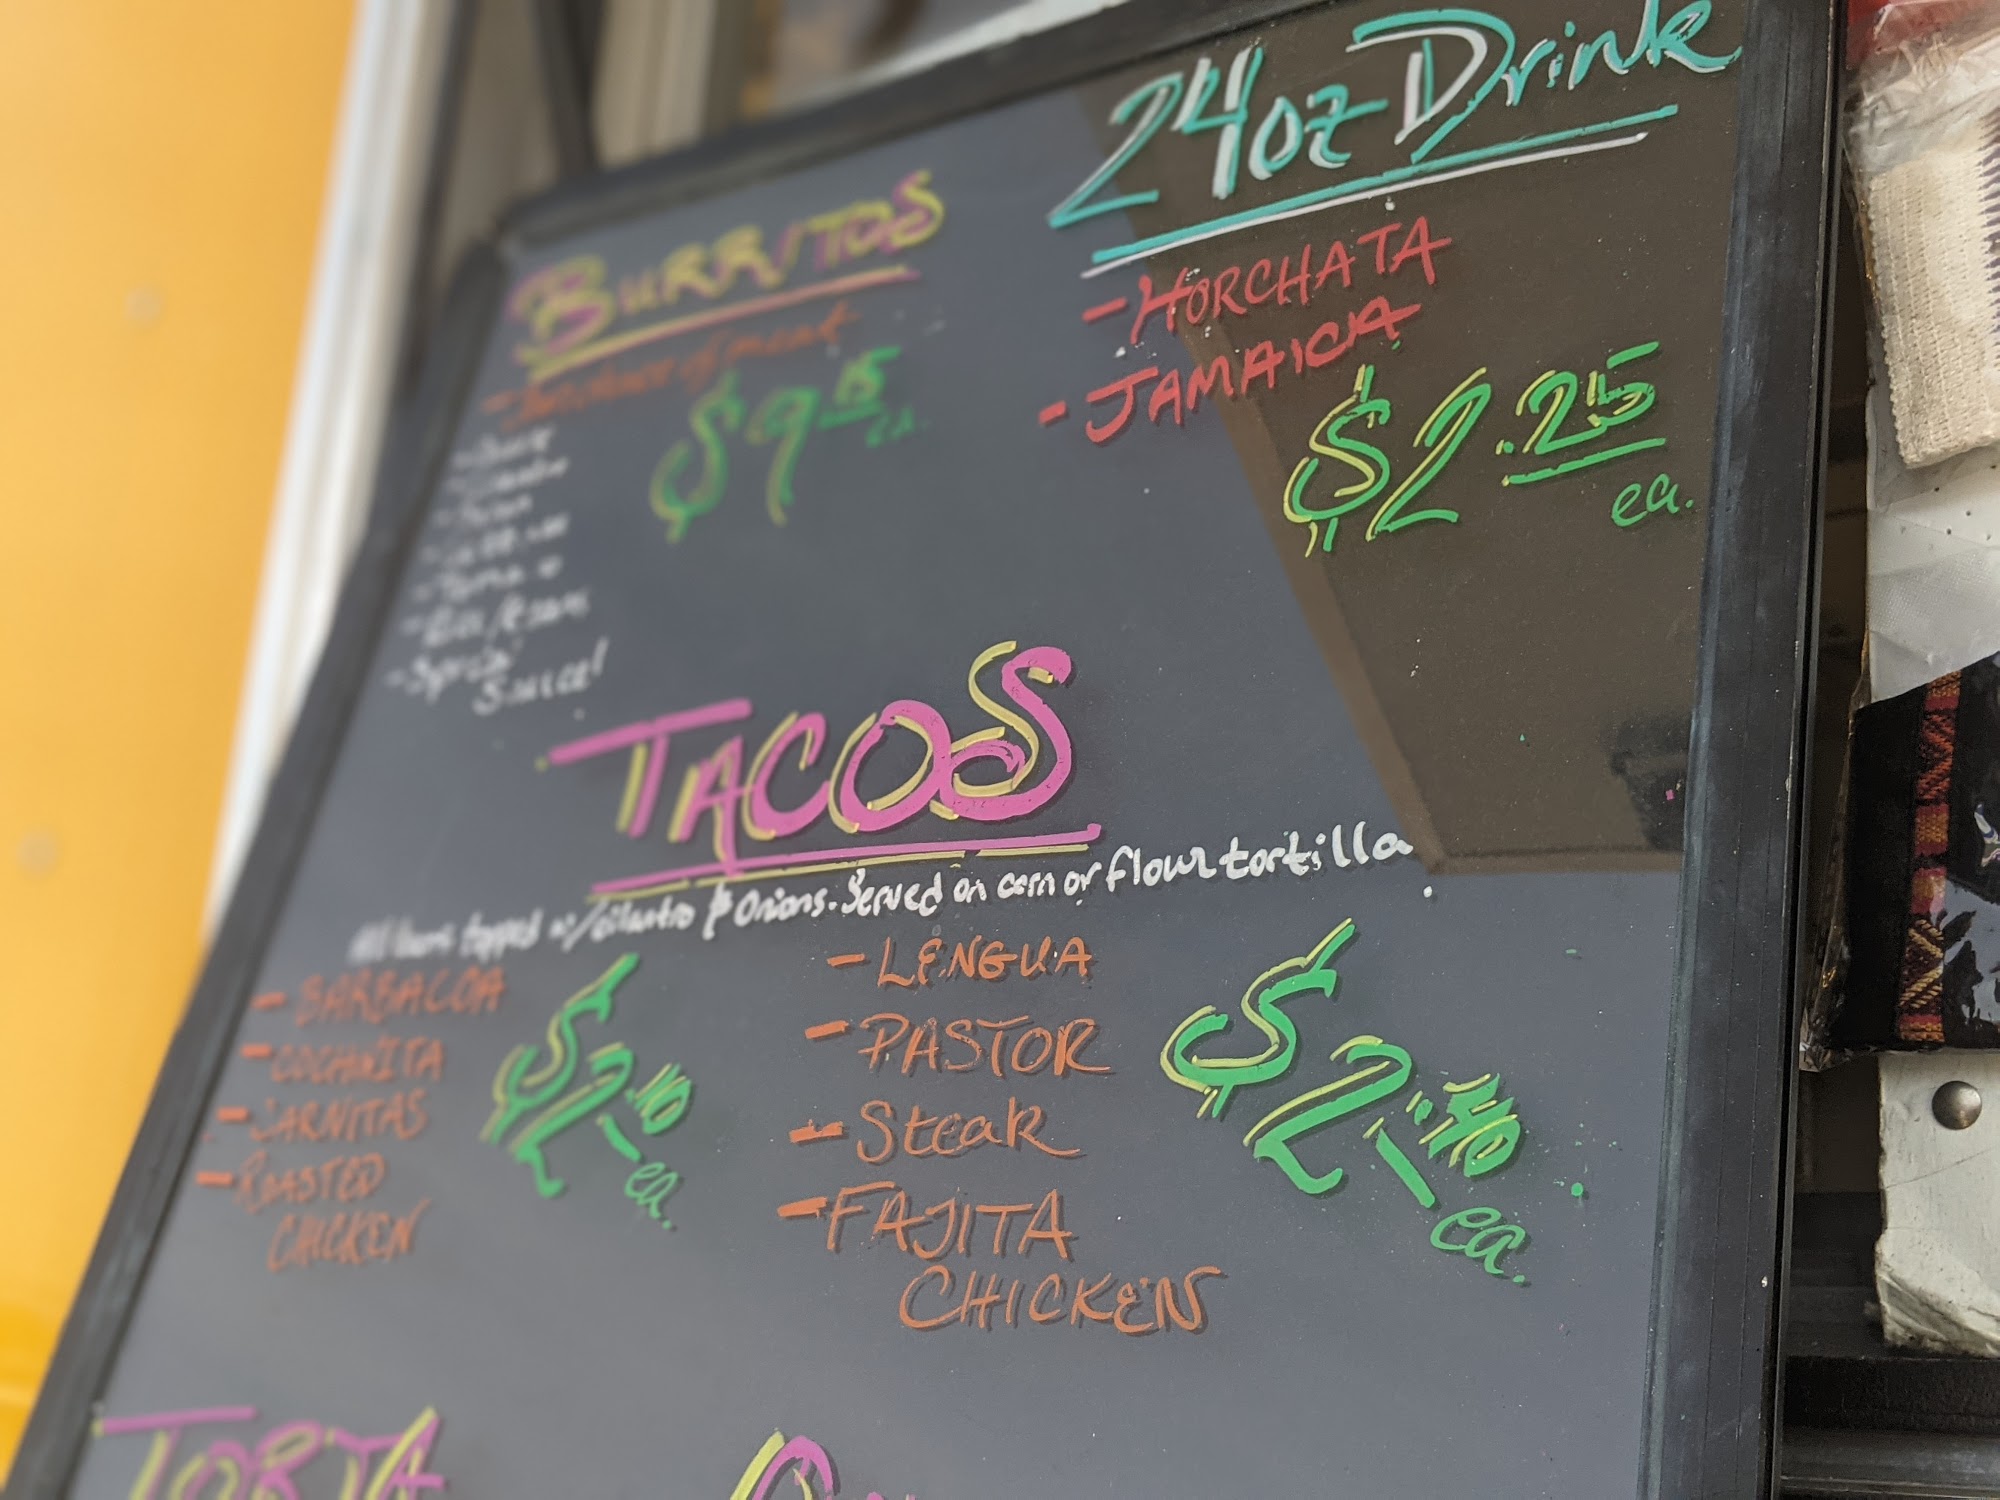 BURRITOS
- Your choice of meat
$9.15 ea.
- Rice
- Beans
- Rice/Beans
- Special
Sauce!
24oz Drink
- HORCHATA
- JAMAICA
$2.25 ea.
TACOS
All tacos topped w/cilantro & onions. Served on corn or flour tortilla
- BARBACOA
- COCHINITA
- CARNITAS
- ROASTED
CHICKEN
ea.
- LENGUA
- PASTOR
- Steak
- FAJITA
CHICKEN
ea.
TORTA